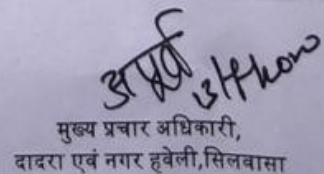 मुख्य प्रचार अधिकारी,
दादरा एवं नगर हवेली,सिलवासा